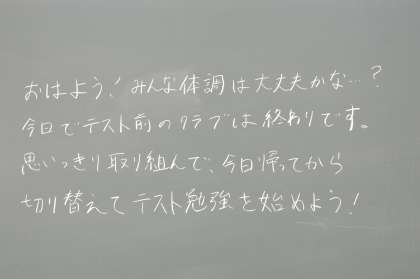 おはよう！みんな体調は大丈夫かな…？
今日でテスト前のクラブは終わりです。
思いっきり取り組んで、今日帰ってから
切り替えてテスト勉強を始めよう！